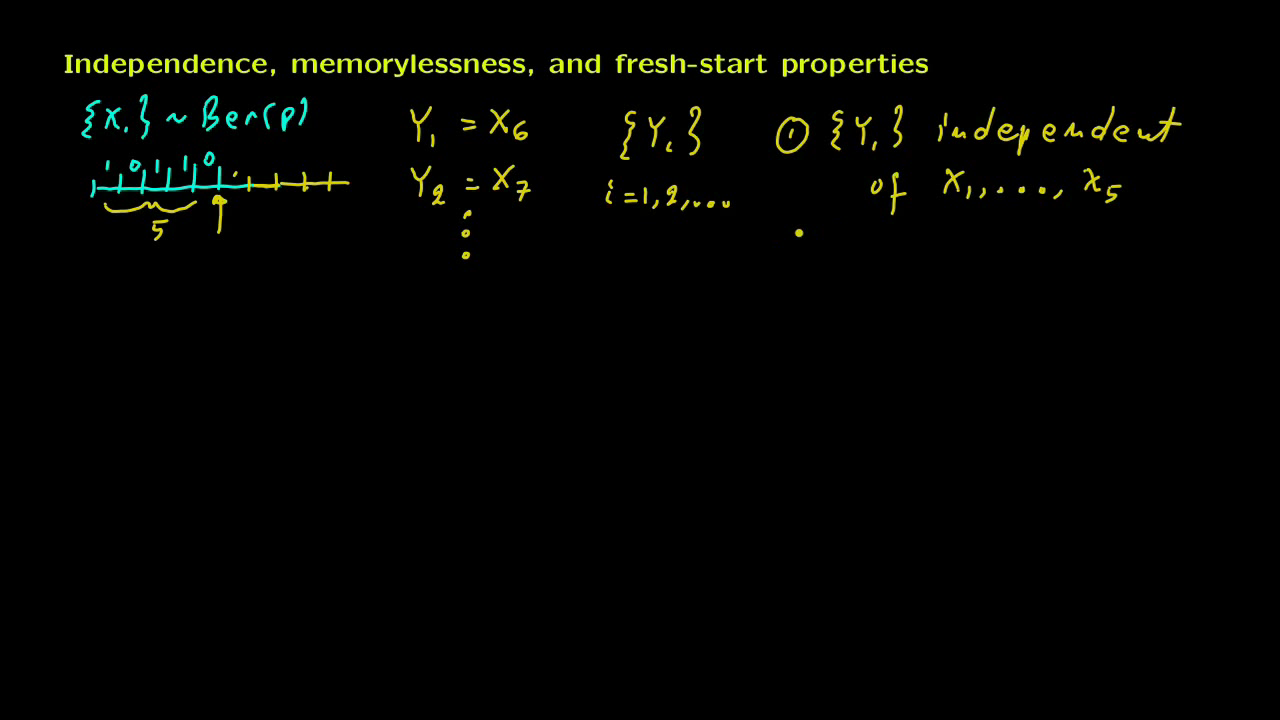 Independence, memorylessness, and fresh-start properties
{X_i} ~ Ber(p)
1 0 1 1 0
5
Y_1 = X_6
Y_2 = X_7
⋮
{Y_i}
i = 1, 2, ...
① {Y_i} independent
of X_1, ..., X_5